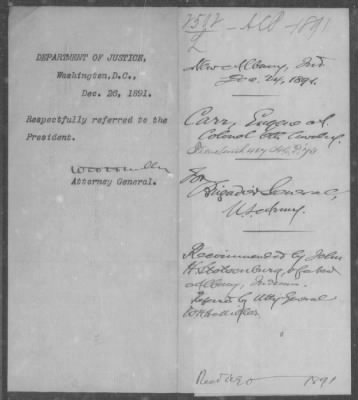 DEPARTMENT OF JUSTICE,
Washington, D.C.,
Dec. 26, 1891.
Respectfully referred to the
President.
Attorney General.
ACP 1891
2
New Albany, Ind
Dec. 24, 1891.
Carr, Eugene A.
Colonel 6th Cavalry
For
Brigadier General,
U.S. Army.
Recommended by John
H. Stotsenburg, of New
Albany, Indiana.
Referred by Atty General
1891